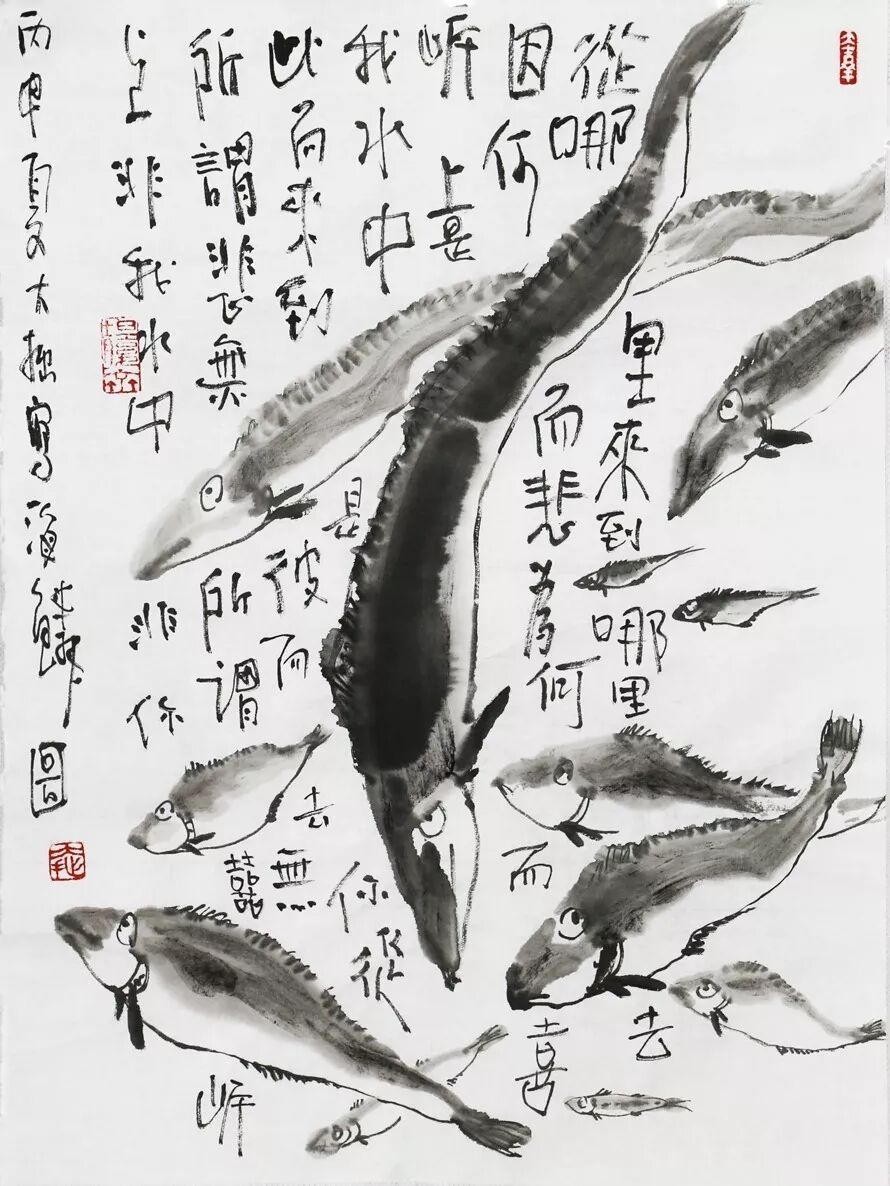 從哪里來到哪里去
因何而悲為何而喜
岸上是
我水中是你從
此而來到彼而去無
所謂悲無所謂囍岸
上非我水中非你
丙申夏大拙寫圖